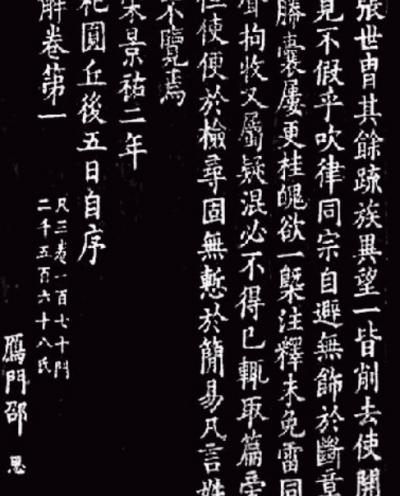 張世胄其餘疎族異望一皆削去使開
見不假乎吹律同宗自避無飾於斷章
縢囊屢更桂魄欲一槩注釋未免雷同
拘收又屬疑混必不得已輒取篇旁
但使便於檢尋固無慙於簡易凡言姓
不覽焉
宋景祐二年
祀圓丘後五日自序
解卷第一
凡三卷一百七十門
二千五百六十八氏
鴈門邵思